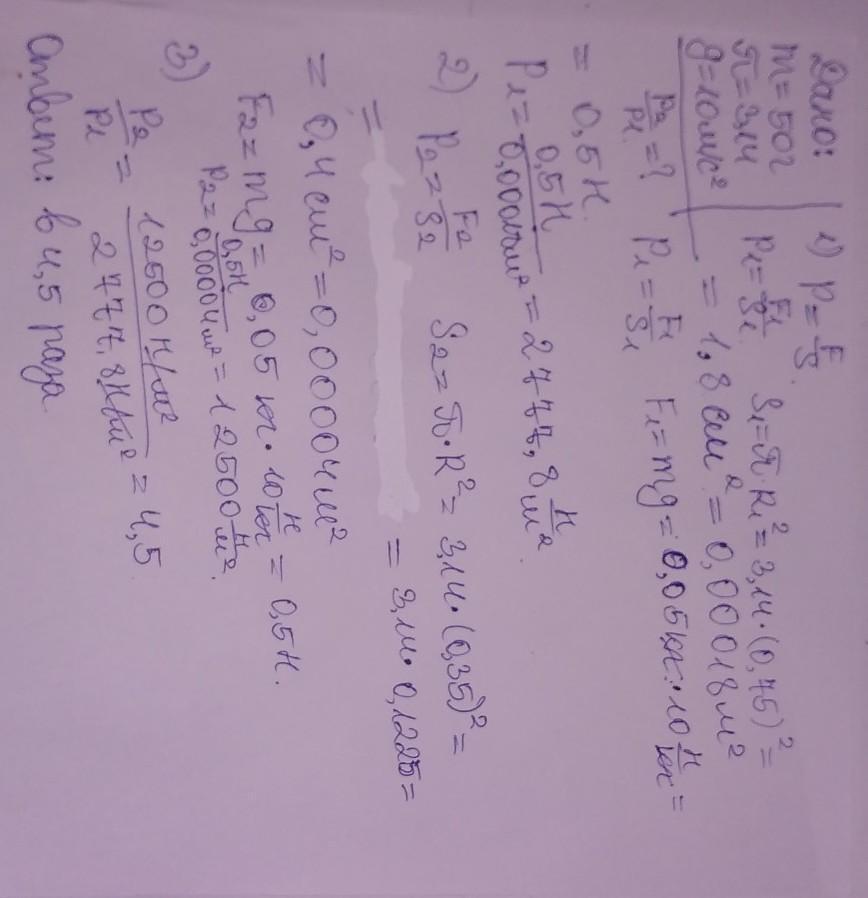 Дано:
m = 50г
π = 3,14
g = 10м/с²
P₂/P₁ = ?
1) P = F/S.
P₁ = F₁/S₁. S₁ = π·R₁² = 3,14·(0,75)² =
= 1,8 см² = 0,00018 м²
P₁ = F₁/S₁ F₁ = mg = 0,05 кг·10 Н/кг =
= 0,5 Н.
P₁ = 0,5Н/0,00018м² = 2777,8 Н/м².
2) P₂ = F₂/S₂ S₂ = π·R² = 3,14·(0,35)² =
= = 3,14·0,1225 =
= 0,4 см² = 0,00004 м²
F₂ = mg = 0,05 кг·10 Н/кг = 0,5 Н.
P₂ = 0,5Н/0,00004м² = 12500 Н/м².
3) P₂/P₁ = 12500 Н/м²/2777,8 Н/м² = 4,5
Ответ: в 4,5 раза